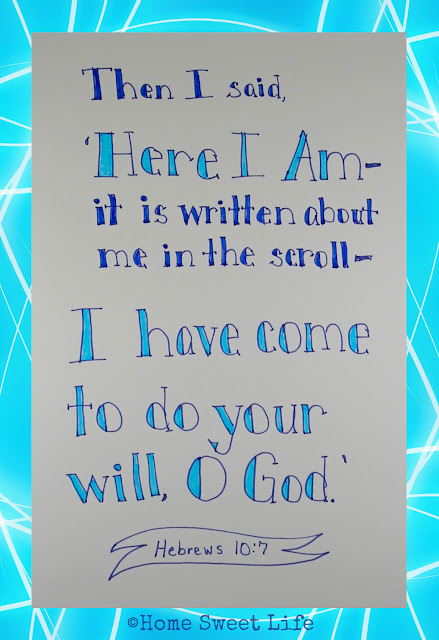 Then I said,
'Here I Am-
it is written about
me in the scroll-
I have come
to do your
will, O God.'
Hebrews 10:7
©Home Sweet Life